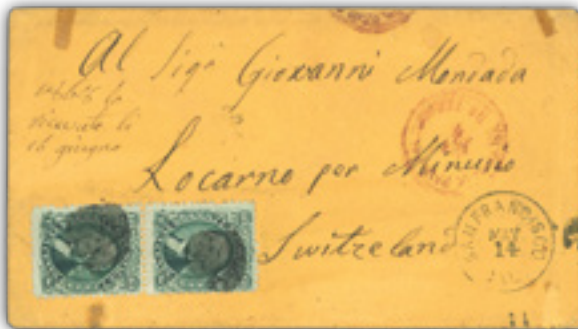 Al Sigr Giovanni Mondada
ricevuta li
16 giugno
Locarno per Minusio
Switzeland
SAN FRANCISCO
MAY
14